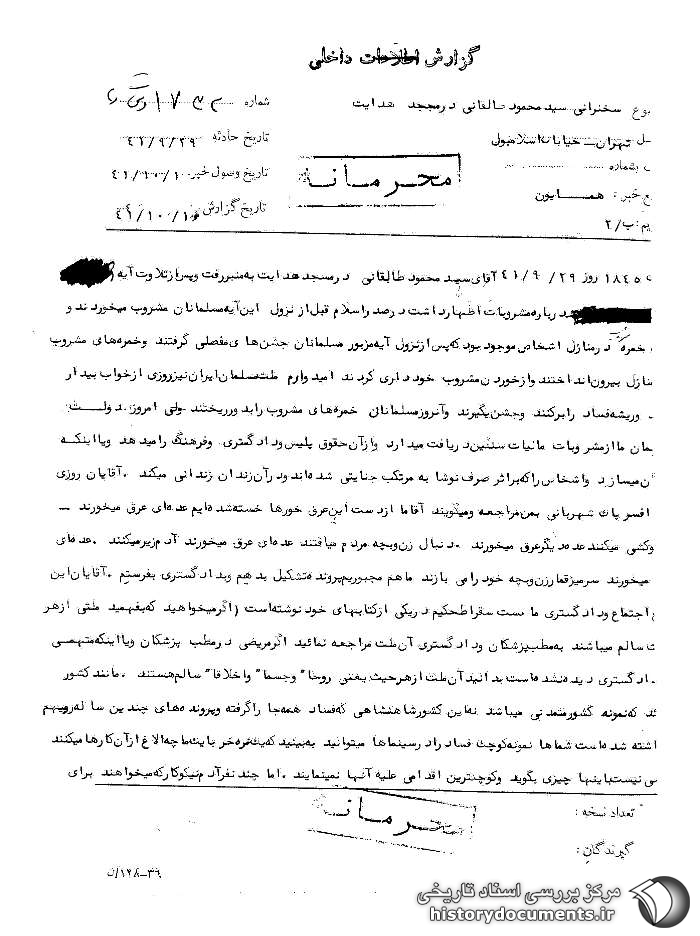 گزارش اطلاعات داخلی
شماره ۱۷۳۳
وع سخنرانی سید محمود طالقانی در مسجد هدایت
تاریخ حادثه ۴۱/۹/۲۹
ل تهران - خیابان اسلامبول
به شماره
تاریخ وصول خبر ۴۱/۱۰/۱۰
محرمانه
ع خبر: همایون
تاریخ گزارش ۴۱/۱۰/۱۰
یم: ب/۲
۱۸۴۵ روز ۴۱/۹/۲۹ آقای سید محمود طالقانی در مسجد هدایت به منبر رفت و پس از تلاوت آیه
درباره مشروبات اظهار داشت در صدر اسلام قبل از نزول این آیه مسلمانان مشروب میخوردند و
خمره در منازل اشخاص موجود بود که پس از نزول آیه مزبور مسلمانان جشن های مفصلی گرفتند وخمره های مشروب
منازل بیرون انداختند واز خوردن مشروب خود داری کردند امیدوارم ملت مسلمان ایران نیز روزی از خواب بیدار
وریشه فساد رابرکنند وجشن بگیرند وآنروز مسلمانان خمره های مشروب رابدور ریختند ولی امروز دولت
مان ما از مشروبات مالیات سنگین دریافت میدارد وازآن حقوق پلیس ودادگستری وفرهنگ رامیدهد ویا اینکه
ن میسازد واشخاص راکه براثر صرف نوشا به مرتکب جنایتی شده اند در آن زندان زندانی میکند . آقایان روزی
افسر پاک شهربانی بمن مراجعه ومیگویند آقا ما از دست این عرق خورها خسته شده ایم عده ای عرق میخورند
وکشی میکنند عده دیگر عرق میخورند . دنبال زن وبچه مردم میافتند عده ای عرق میخورند آدم زیر میکنند . عده ای
میخورند سرمیز قمار زن وبچه خود را می بازند ما هم مجبوریم پرونده تشکیل بدهیم وبدادگستری بفرستیم . آقایان این
اجتماع ودادگستری ما ست سقراط حکیم دریکی ازکتابهای خود نوشته است ( اگر میخواهید که بفهمید ملتی ازهر
ت سالم میباشند به مطب پزشکان ودادگستری آن ملت مراجعه نمائید اگر مریضی در مطب پزشکان ویا اینکه متهمی
دادگستری دیده نشده است بدانید آن ملت ازهر حیث یعنی روحا" وجسما" واخلاقا" سالم هستند . مانند کشور
ند که نمونه کشور متمدنی میباشد نه این کشور شاهنشاهی که فساد همه جا را گرفته وپرونده های چندین ساله رویهم
اشته شده است شما ها نمونه کوچک فساد را در سینماها میتوانید به بینید که یک نره خر با یک ماچه الاغ ازآن کارها میکنند
سی نیست باینها چیزی بگوید وکوچکترین اقدامی علیه آنها نمینمایند . اما چند نفر آدم نیکوکارکه میخواهند برای
تعداد نسخه :
محرمانه
گیرندگان:
۱۲۸-۳۶/ن
مرکز بررسی اسناد تاریخی
historydocuments.ir